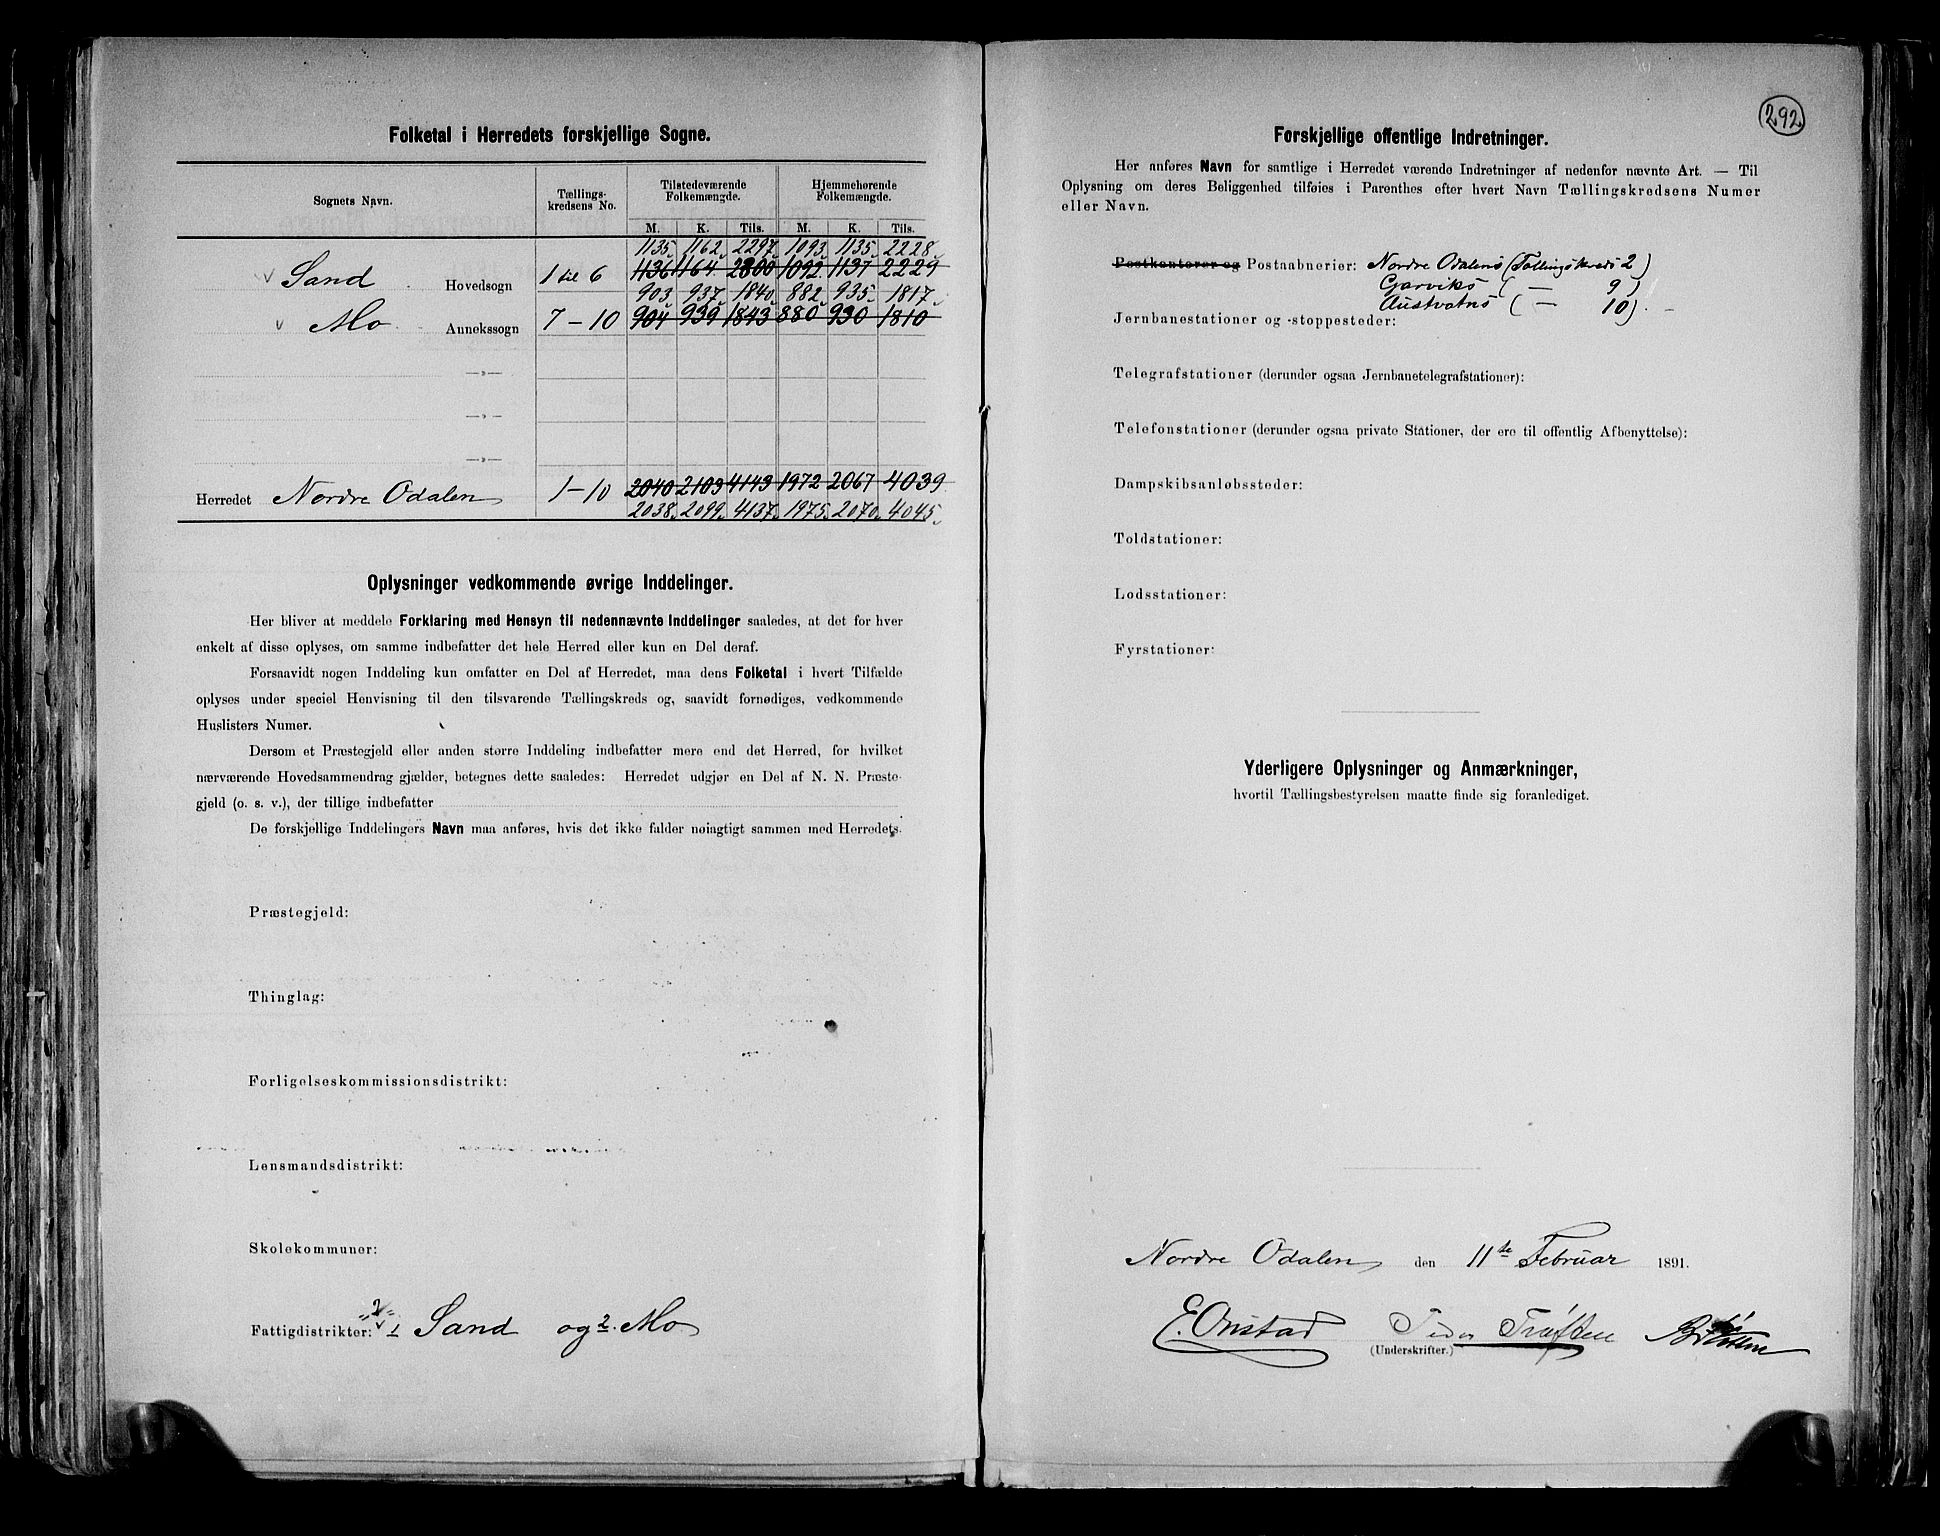 Folketal i Herredets forskjellige Sogne.
Sognets Navn. Tællings- kredsens No. Tilstedeværende Folkemængde. Hjemmehørende Folkemængde.
M. K. Tils. M. K. Tils.
1135 1162 2297 1093 1135 2228
Sand Hovedsogn 1 til 6 1136 1164 2300 1092 1137 2229
903 937 1840 882 935 1817
Mo Annekssogn 7-10 904 939 1843 880 930 1810
—»—
—»—
—»—
Herredet Nordre Odalen 1-10 2040 2103 4143 1972 2067 4039
2038 2099 4137 1975 2070 4045
Oplysninger vedkommende øvrige Inddelinger.
Her bliver at meddele Forklaring med Hensyn til nedennævnte Inddelinger saaledes, at det for hver
enkelt af disse oplyses, om samme indbefatter det hele Herred eller kun en Del deraf.
Forsaavidt nogen Inddeling kun omfatter en Del af Herredet, maa dens Folketal i hvert Tilfælde
oplyses under speciel Henvisning til den tilsvarende Tællingskreds og, saavidt fornødiges, vedkommende
Huslisters Numer.
Dersom et Præstegjeld eller anden større Inddeling indbefatter mere end det Herred, for hvilket
nærværende Hovedsammendrag gjælder, betegnes dette saaledes: Herredet udgjør en Del af N. N. Præste-
gjeld (o. s. v.), der tillige indbefatter
De forskjellige Inddelingers Navn maa anføres, hvis det ikke falder nøiagtigt sammen med Herredets.
Præstegjeld:
Thinglag:
Forligelseskommissionsdistrikt:
Lensmandsdistrikt:
Skolekommuner:
"2"
Fattigdistrikter: 1 Sand og 2. Mo
292
Forskjellige offentlige Indretninger.
Her anføres Navn for samtlige i Herredet værende Indretninger af nedenfor nævnte Art. — Til
Oplysning om deres Beliggenhed tilføies i Parenthes efter hvert Navn Tællingskredsens Numer
eller Navn.
Postkontorer og Postaabnerier: Nordre Odalens (Tællingskreds 2)
Garviks ( — 9)
Austvatns ( — 10).
Jernbanestationer og -stoppesteder:
Telegrafstationer (derunder ogsaa Jernbanetelegrafstationer):
Telefonstationer (derunder ogsaa private Stationer, der ere til offentlig Afbenyttelse):
Dampskibsanløbssteder:
Toldstationer:
Lodsstationer:
Fyrstationer:
Yderligere Oplysninger og Anmærkninger,
hvortil Tællingsbestyrelsen maatte finde sig foranlediget.
Nordre Odalen den 11te Februar 1891.
E. Onstad Peder
(Underskrifter.)